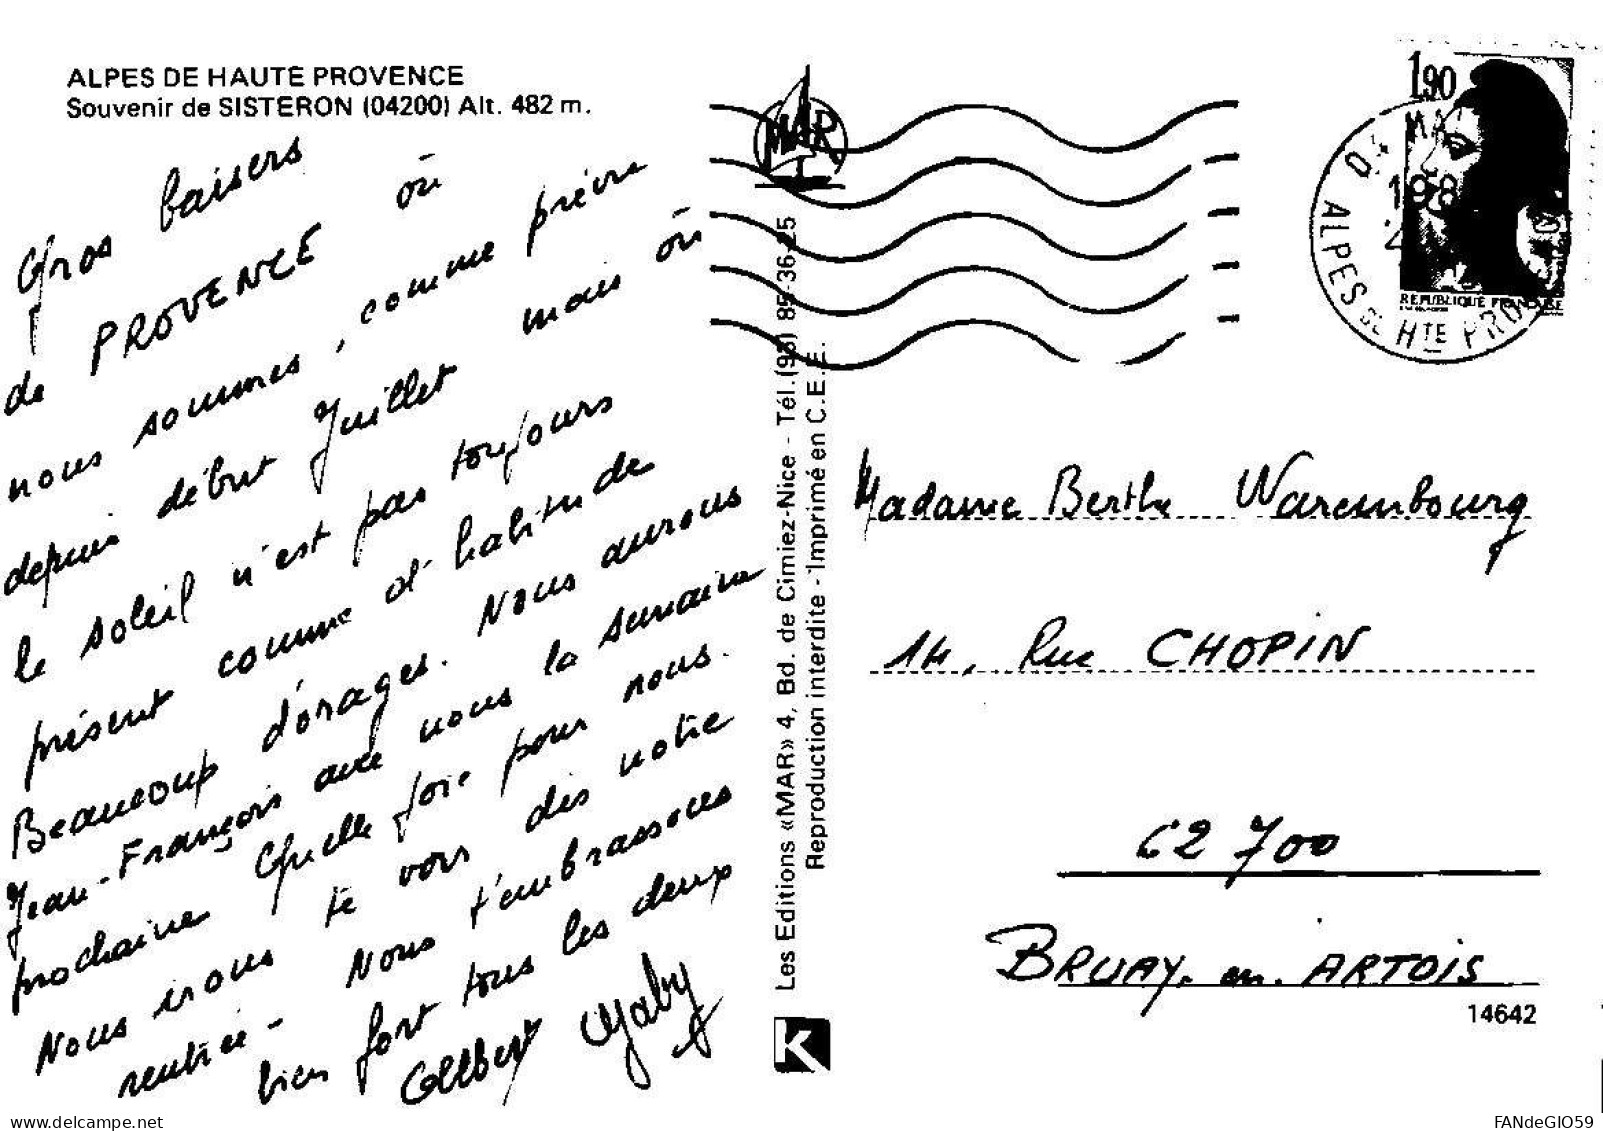 ALPES DE HAUTE PROVENCE
Souvenir de SISTERON (04200) Alt. 482 m.
Gros baisers
de PROVENCE où
nous sommes, comme prévu
depuis début Juillet mais où
le soleil n'est pas toujours
présent comme d'habitude
Beaucoup d'orages. Nous aurons
Jean-François avec nous la semaine
prochaine Quelle joie pour nous.
Nous irons te voir dès notre
rentrée - Nous t'embrassons
bien fort tous les deux
Gaby
MAR
Les Editions «MAR» 4, Bd. de Cimiez-Nice - Tél. (93) 85-36-25
Reproduction interdite - Imprimé en C.E.E.
K
1,90
REPUBLIQUE FRANÇAISE
04
ALPES DE HTE PROVENCE
Madame Berthe Warembourg
14, Rue CHOPIN
62 700
BRUAY. en. ARTOIS
14642
www.delcampe.net
FANdeGIO59